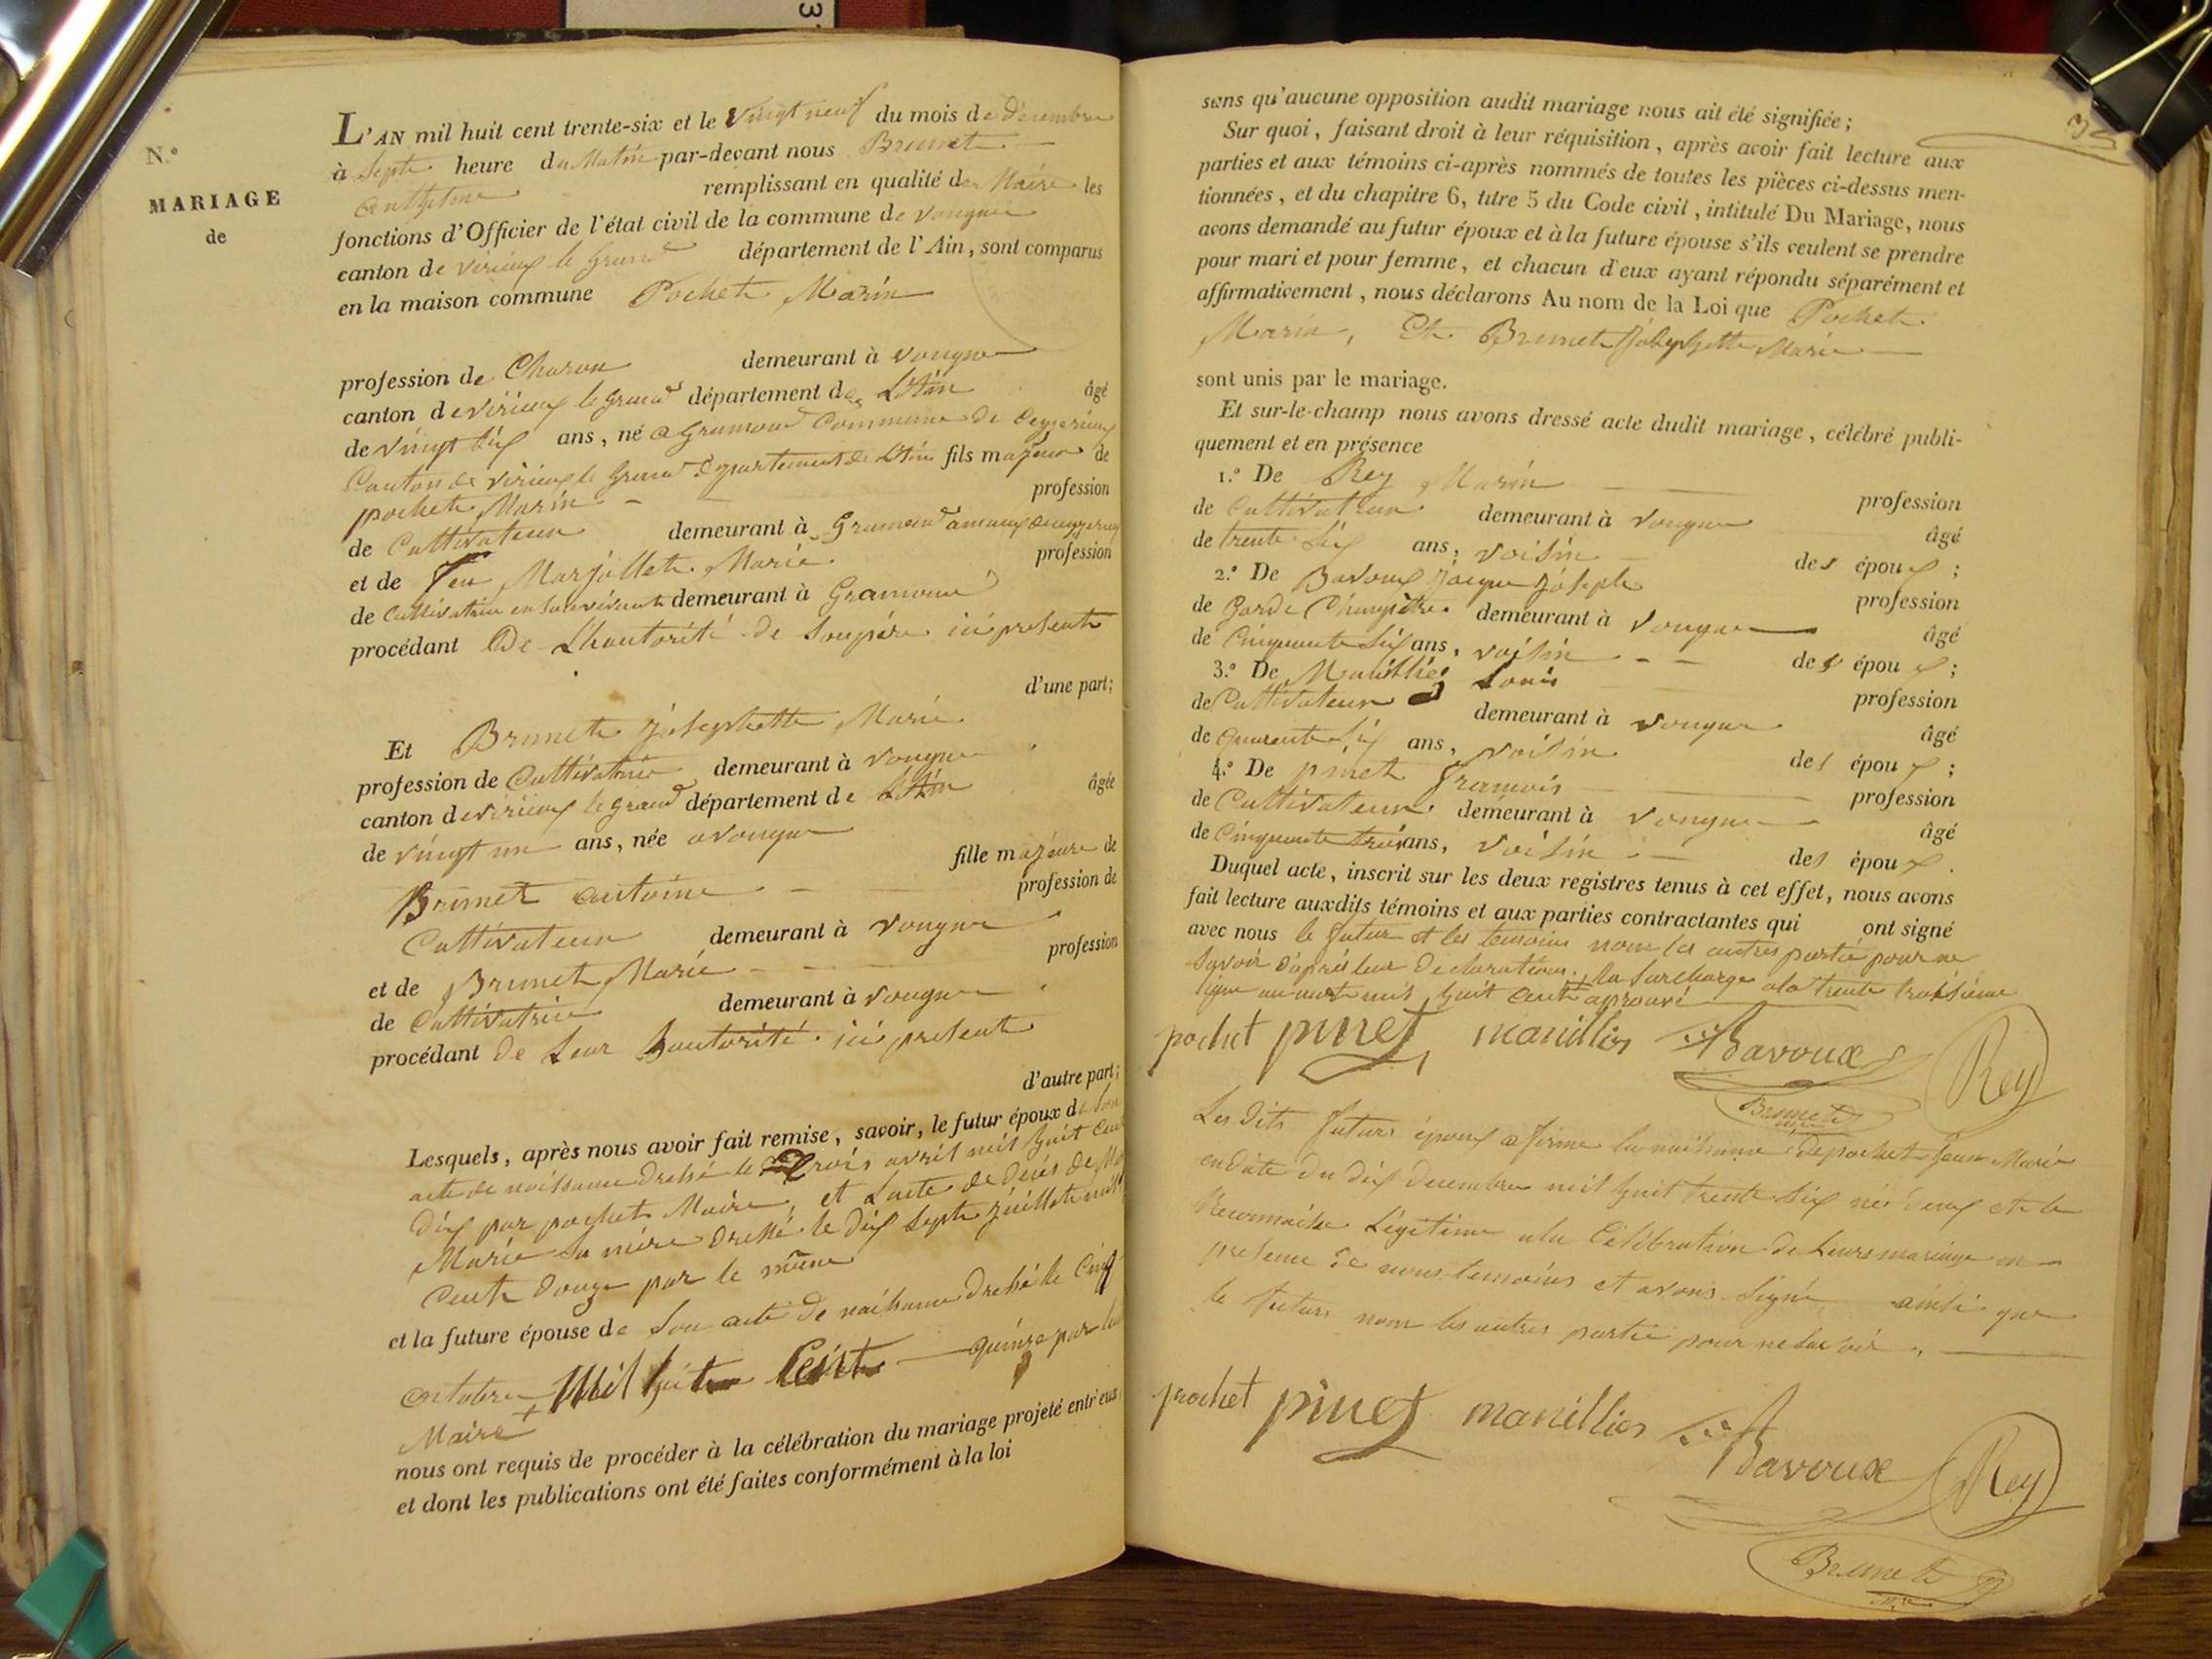 3
N.°
MARIAGE
de
L'AN mil huit cent trente-six et le Vingt neuf du mois de décembre
à Septe heure du Matin par-devant nous Brunet
Anthelme remplissant en qualité de Maire les
fonctions d'Officier de l'état civil de la commune de vongne
canton de virieux le Grand département de l'Ain, sont comparus
en la maison commune Pochet Marin
profession de Charon demeurant à vongne
canton de virieux le grand département de L'Ain âgé
de vingt six ans, né a Gramond Commune de Ceyzerieux
Canton de virieux le Grand département de L'Ain fils majeur de
pochet Marin profession
de Cultivateur demeurant à Gramond
et de feu Marjollet Marie profession
de Cultivatrice en Son vivant demeurant à Gramond
procédant De L'hautorité de Son père ici présent
d'une part;
Et Brunet josephette Marie
profession de Cultivatrice demeurant à vongne
canton de virieux le grand département de L'Ain âgée
de vingt un ans, née a vongne
fille majeure de
Brunet antoine profession de
Cultivateur demeurant à vongne
et de Brunet Marie profession
de Cultivatrice demeurant à vongne
procédant de Leur hautorité ici present
d'autre part;
Lesquels, après nous avoir fait remise, savoir, le futur époux de Son
acte de naissance dressé le trois avril mil huit cent
dix par pochet Maire, et L'acte de décès de
Marie Sa mère dressé le dix Septe juillet mil
Cent douze par le même
et la future épouse de Son acte de naissance dressé le Cinq
octobre Mil huit Cent quinze par le
Maire +
nous ont requis de procéder à la célébration du mariage projeté entr'eux
et dont les publications ont été faites conformément à la loi
sans qu'aucune opposition audit mariage nous ait été signifiée;
Sur quoi, faisant droit à leur réquisition, après avoir fait lecture aux
parties et aux témoins ci-après nommés de toutes les pièces ci-dessus men-
tionnées, et du chapitre 6, titre 5 du Code civil, intitulé Du Mariage, nous
avons demandé au futur époux et à la future épouse s'ils veulent se prendre
pour mari et pour femme, et chacun d'eux ayant répondu séparément et
affirmativement, nous déclarons Au nom de la Loi que Pochet
Marin, Et Brunet josephette Marie
sont unis par le mariage.
Et sur-le-champ nous avons dressé acte dudit mariage, célébré publi-
quement et en présence
1.° De Rey Marin profession
de Cultivateur demeurant à vongne âgé
de trente Six ans, voisin des époux;
2.° De Bavoux jacque joseph profession
de Garde Champêtre demeurant à vongne âgé
de Cinquante Six ans, voisin des époux;
3.° De Manillier Louis profession
de Cultivateur demeurant à vongne âgé
de quarante Six ans, voisin des époux;
4.° De pinet francois profession
de Cultivateur demeurant à vongne âgé
de Cinquante trois ans, voisin des époux.
Duquel acte, inscrit sur les deux registres tenus à cet effet, nous avons
fait lecture auxdits témoins et aux parties contractantes qui ont signé
avec nous le futur et les temoins non les autres partie pour ne
Savoir d'après leur déclaration. + La Surcharge a la trente troisième
ligne mil huit Cent aprouvé
pochet pinet manillier Bavoux Rey
Brunet
Les dits futurs époux afirme la naissance de pochet jean Marie
en date du dix decembre mil huit trente Six né deux et le
Reconnaisse Légitime a la Célébration de Leurs mariage en
presence de nous temoins et avons Signé ainsi que
le futurs non les autres partie pour ne Savoir.
pochet pinet manillier Bavoux Rey
Brunet